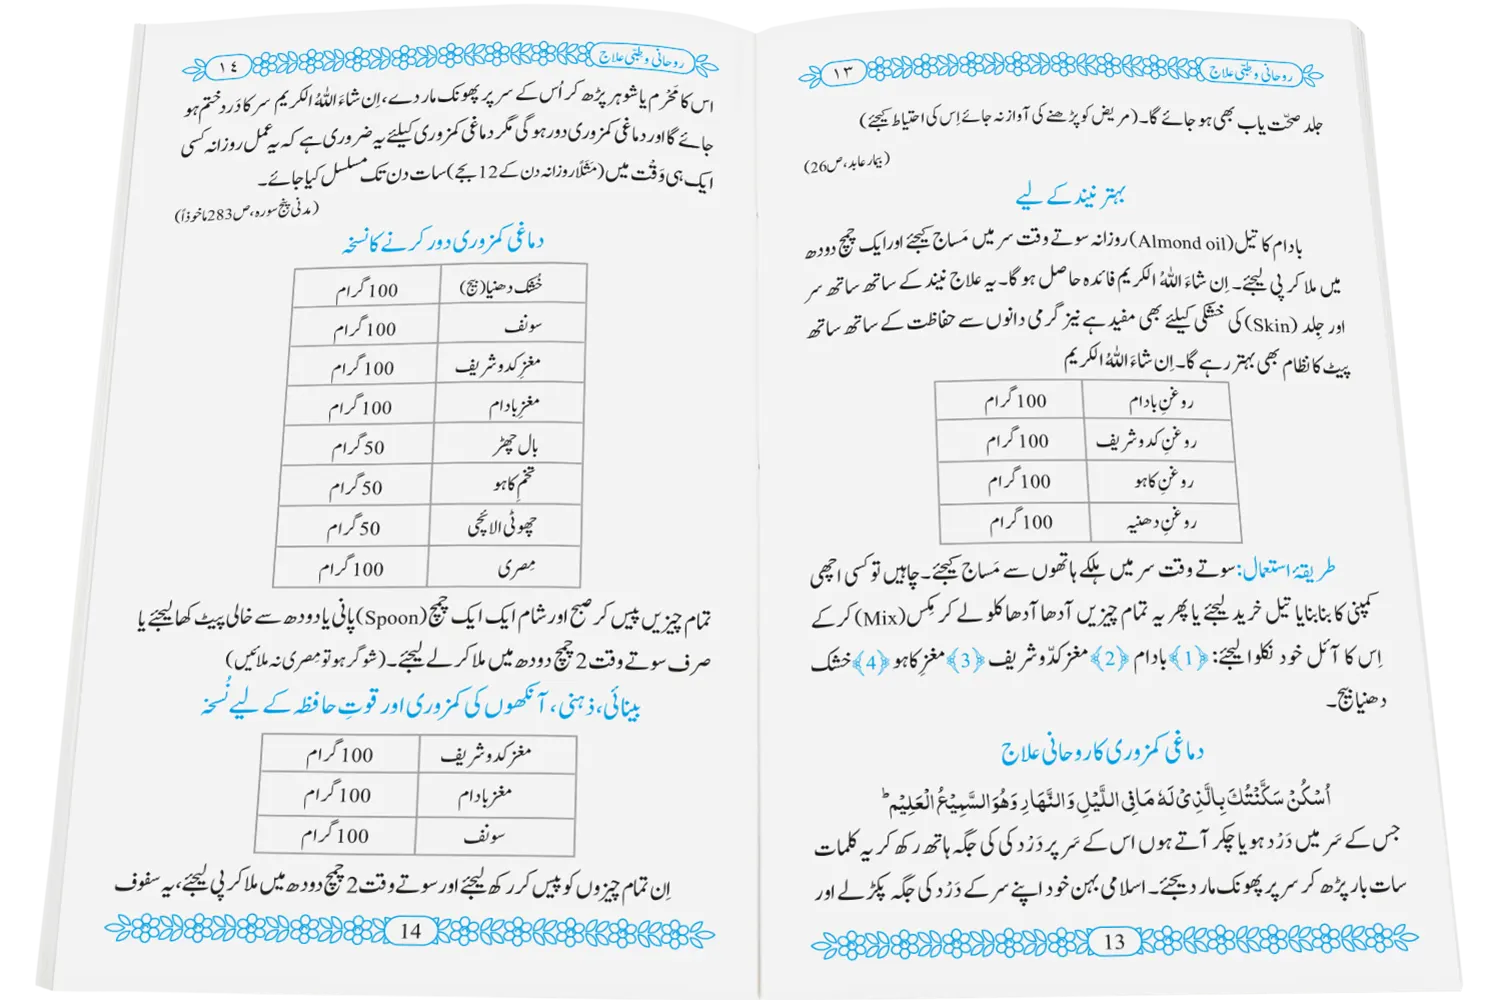 روحانی و طبّی علاج
١٣
جلد صحّت یاب بھی ہو جائے گا۔ (مریض کو پڑھنے کی آواز نہ جائے اِس کی احتیاط کیجئے)
(بیمار عابد، ص26)
بہتر نیند کے لیے
بادام کا تیل (Almond oil) روزانہ سوتے وقت سر میں مَساج کیجئے اور ایک چمچ دودھ
میں ملا کر پی لیجئے۔ اِن شاءَ اللهُ الکریم فائدہ حاصل ہو گا۔ یہ علاج نیند کے ساتھ ساتھ سر
اور جِلد (Skin) کی خشکی کیلئے بھی مفید ہے نیز گرمی دانوں سے حفاظت کے ساتھ ساتھ
پیٹ کا نظام بھی بہتر رہے گا۔ اِن شاءَ اللهُ الکریم
روغنِ بادام 100 گرام
روغنِ کدو شریف 100 گرام
روغنِ کاہو 100 گرام
روغنِ دھنیہ 100 گرام
طریقۂ استعمال: سوتے وقت سر میں ہلکے ہاتھوں سے مَساج کیجئے۔ چاہیں تو کسی اچھی
کمپنی کا بنا بنایا تیل خرید لیجئے یا پھر یہ تمام چیزیں آدھا آدھا کلو لے کر مِکس (Mix) کر کے
اِس کا آئل خود نکلوا لیجئے: ﴿1﴾ بادام ﴿2﴾ مغز کدّو شریف ﴿3﴾ مغز کاہو ﴿4﴾ خشک
دھنیا بیج۔
دماغی کمزوری کا روحانی علاج
اُسْکُنْ سَکَّنْتُكَ بِالَّذِیْ لَهٗ مَا فِی اللَّیْلِ وَالنَّهَارِ وَهُوَ السَّمِیْعُ الْعَلِیْمُ ؕ
جس کے سَر میں دَرْد ہو یا چکر آتے ہوں اس کے سَر پر دَرْد کی کی جگہ ہاتھ رکھ کر یہ کلمات
سات بار پڑھ کر سر پر پھونک مار دیجئے۔ اسلامی بہن خود اپنے سر کے دَرْد کی جگہ پکڑ لے اور
13
روحانی و طبّی علاج
١٤
اس کا مَحْرم یا شوہر پڑھ کر اُس کے سر پر پھونک مار دے، اِن شاءَ اللهُ الکریم سر کا دَرد ختم ہو
جائے گا اور دماغی کمزوری دور ہو گی مگر دماغی کمزوری کیلئے یہ ضروری ہے کہ یہ عمل روزانہ کسی
ایک ہی وَقْت میں (مَثَلًا روزانہ دن کے 12 بجے) سات دن تک مسلسل کیا جائے۔
(مدنی پنج سورہ، ص283 ماخوذاً)
دماغی کمزوری دور کرنے کا نسخہ
خُشک دھنیا (بیج) 100 گرام
سونف 100 گرام
مغزِ کدو شریف 100 گرام
مغزِ بادام 100 گرام
بال چھڑ 50 گرام
تخمِ کاہو 50 گرام
چھوٹی الائچی 50 گرام
مِصری 100 گرام
تمام چیزیں پیس کر صبح اور شام ایک ایک چمچ (Spoon) پانی یا دودھ سے خالی پیٹ کھا لیجئے یا
صرف سوتے وقت 2 چمچ دودھ میں ملا کر لے لیجئے۔ (شوگر ہو تو مِصری نہ ملائیں)
بینائی، ذہنی، آنکھوں کی کمزوری اور قوتِ حافظہ کے لیے نُسخہ
مغز کدو شریف 100 گرام
مغز بادام 100 گرام
سونف 100 گرام
اِن تمام چیزوں کو پیس کر رکھ لیجئے اور سوتے وقت 2 چمچ دودھ میں ملا کر پی لیجئے، یہ سفوف
14